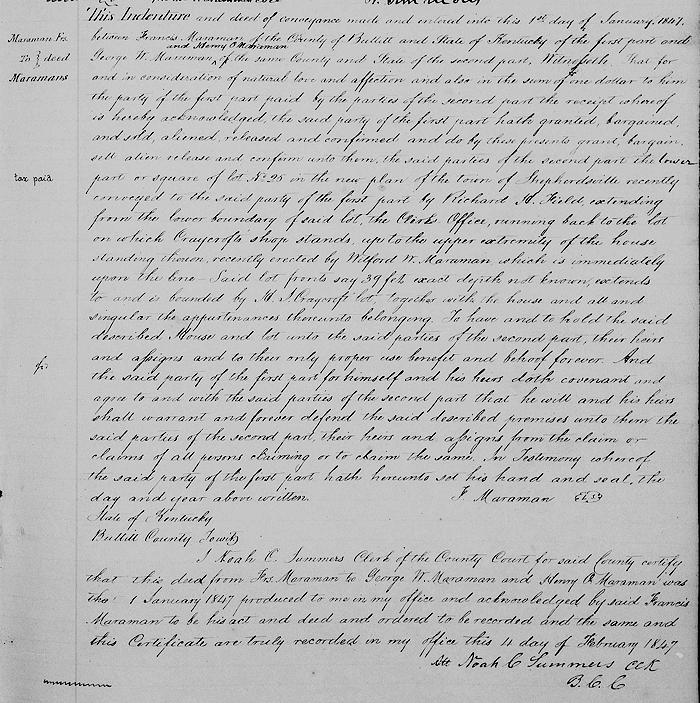 This Indenture and deed of conveyance made and entered into this 1st day of January, 1847.
Maraman Fs.
To } deed
Maramans
between Francis Maraman of the County of Bullitt and State of Kentucky of the first part and
and Henry O Maraman
George W. Maraman, of the same County and State of the second part, Witnesseth, That for
and in consideration of natural love and affection and also in the sum of one dollar to him
the party of the first part paid by the parties of the second part the receipt whereof
is hereby acknowledged, the said party of the first part hath granted, bargained,
and sold, aliened, released and confirmed and do by these presents grant, bargain,
sell alien release and confirm unto them, the said parties of the second part the lower
tax paid
part or square of lot No 25 in the new plan of the town of Shepherdsville recently
conveyed to the said party of the first part by Richard H. Field, extending
from the lower boundary of said lot, the Clerks Office, running back to the lot
on which Craycrofts shop stands, up to the upper extremity of the house
standing thereon, recently erected by Wilford W. Maraman which is immediately
upon the line - Said lot fronts say 39 feet exact depth not known, extends
to and is bounded by M. J. Craycroft lot, together with the house and all and
singular the appurtenances thereunto belonging. To have and to hold the said
described House and lot unto the said parties of the second part, their heirs
and assigns and to their only proper use benefit and behoof forever. And
the said party of the first part for himself and his heirs doth covenand and
agree to and with the said parties of the second part that he will and his heirs
shall warrant and forever defend the said described premises unto them the
said parties of the second part, their heirs and assigns from the claim or
claims of all persons claiming or to claim the same. In Testimony whereof
the said party of the first part hath hereunto set his hand and seal, the
day and year above written. F Maraman
State of Kentucky
Bullitt County Towit
I Noah C. Summers Clerk of the County Court for said County certify
that this deed from Fs. Maraman to George W. Maraman and Henry O. Maraman was
the 1 January 1847 produced to me in my office and acknowledged by said Francis
Maraman to be his act and deed and ordered to be recorded and the same and
this Certificate are truly recorded in my office this 4 day of February 1847
Att Noah C Summers CCK
B. C. C